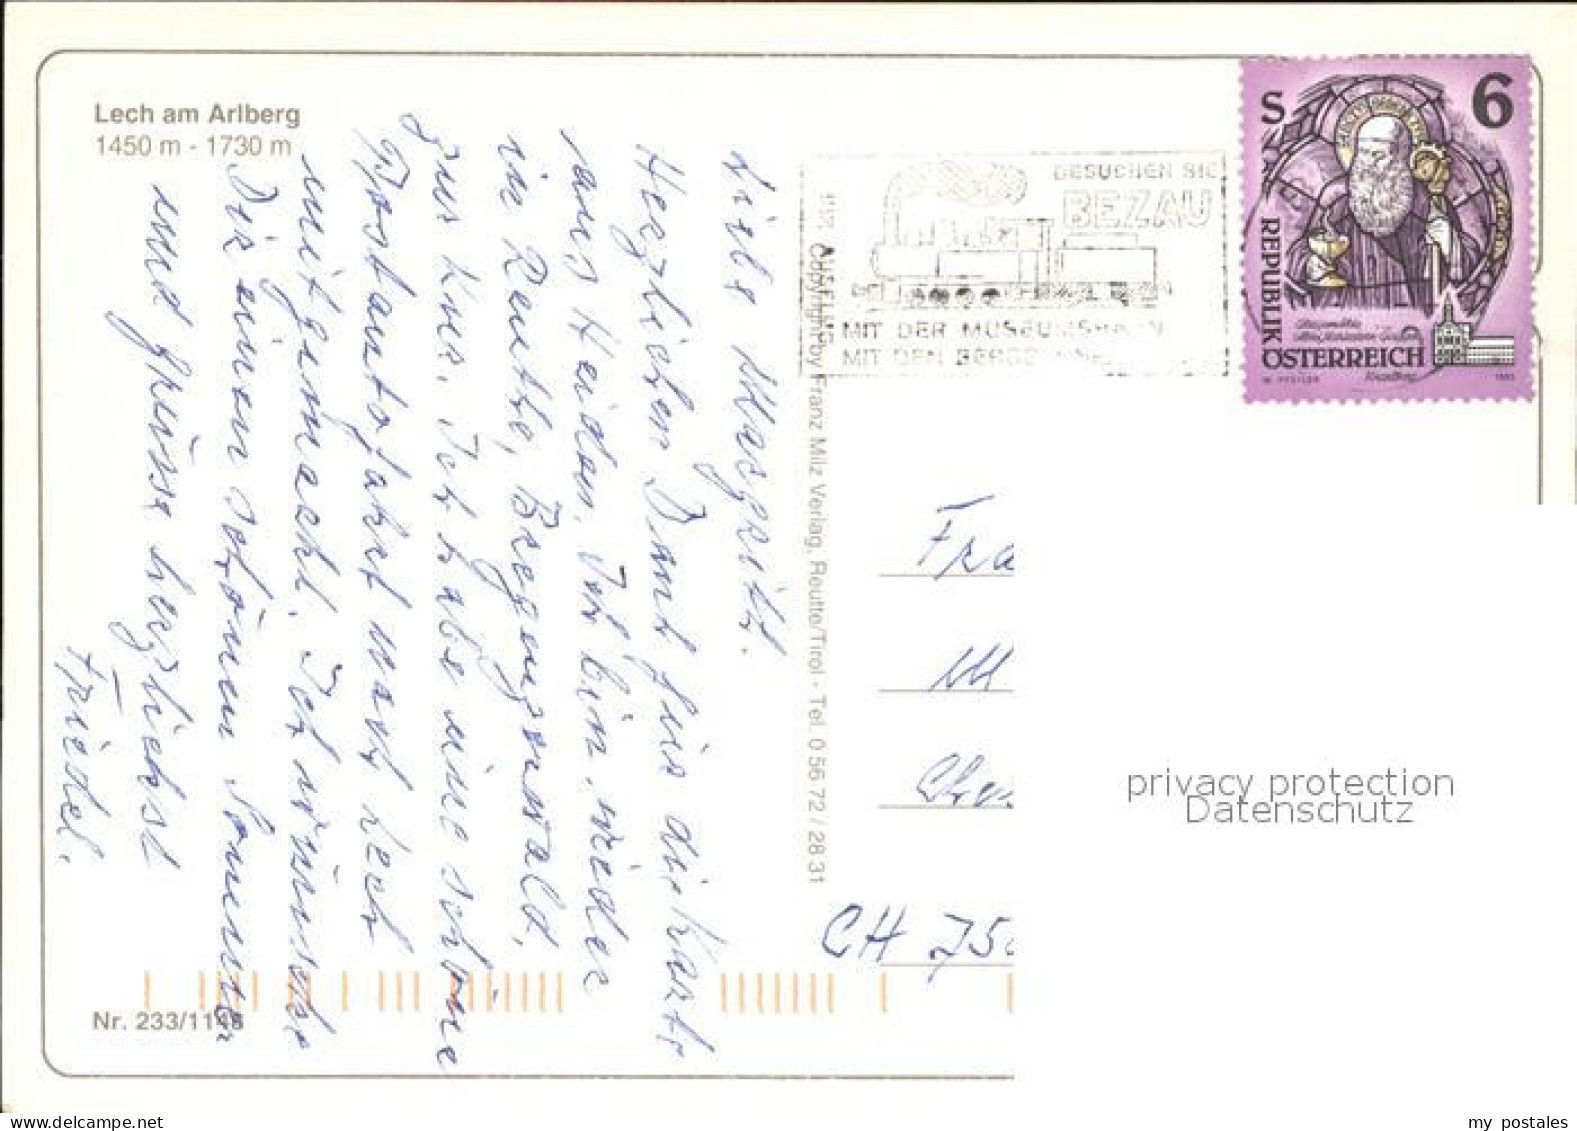 Lech am Arlberg
1450 m - 1730 m
Liebe Margritt.
Herzlichen Dank für die Karte
aus Heiden. Ich bin wieder
in Reuthe, Bregenzerwald,
zur Kur. Ich habe eine schöne
Postautofahrt nach Lech
mitgemacht. Ich wünsche
Dir einen schönen Sommer
und grüsse herzlichst
Friedel.
Nr. 233/1148
Copyright by Franz Milz Verlag, Reutte/Tirol - Tel. 0 56 72 / 28 31
BESUCHEN SIE
BEZAU
MIT DER MUSEUMSBAHN
MIT DEN
S 6
REPUBLIK
ÖSTERREICH
W. PFEILER 1993
Fra
CH 75
privacy protection
Datenschutz
my postales